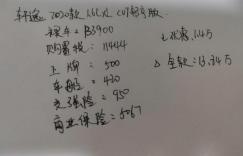 轩逸 2020款 1.6L XL CVT智享版
裸车 = 83900
购置税: 11444
上牌 = 500
车船 = 430
交强险 = 950
商业保险 = 5067
优惠 1.4万
全款: 13.34万